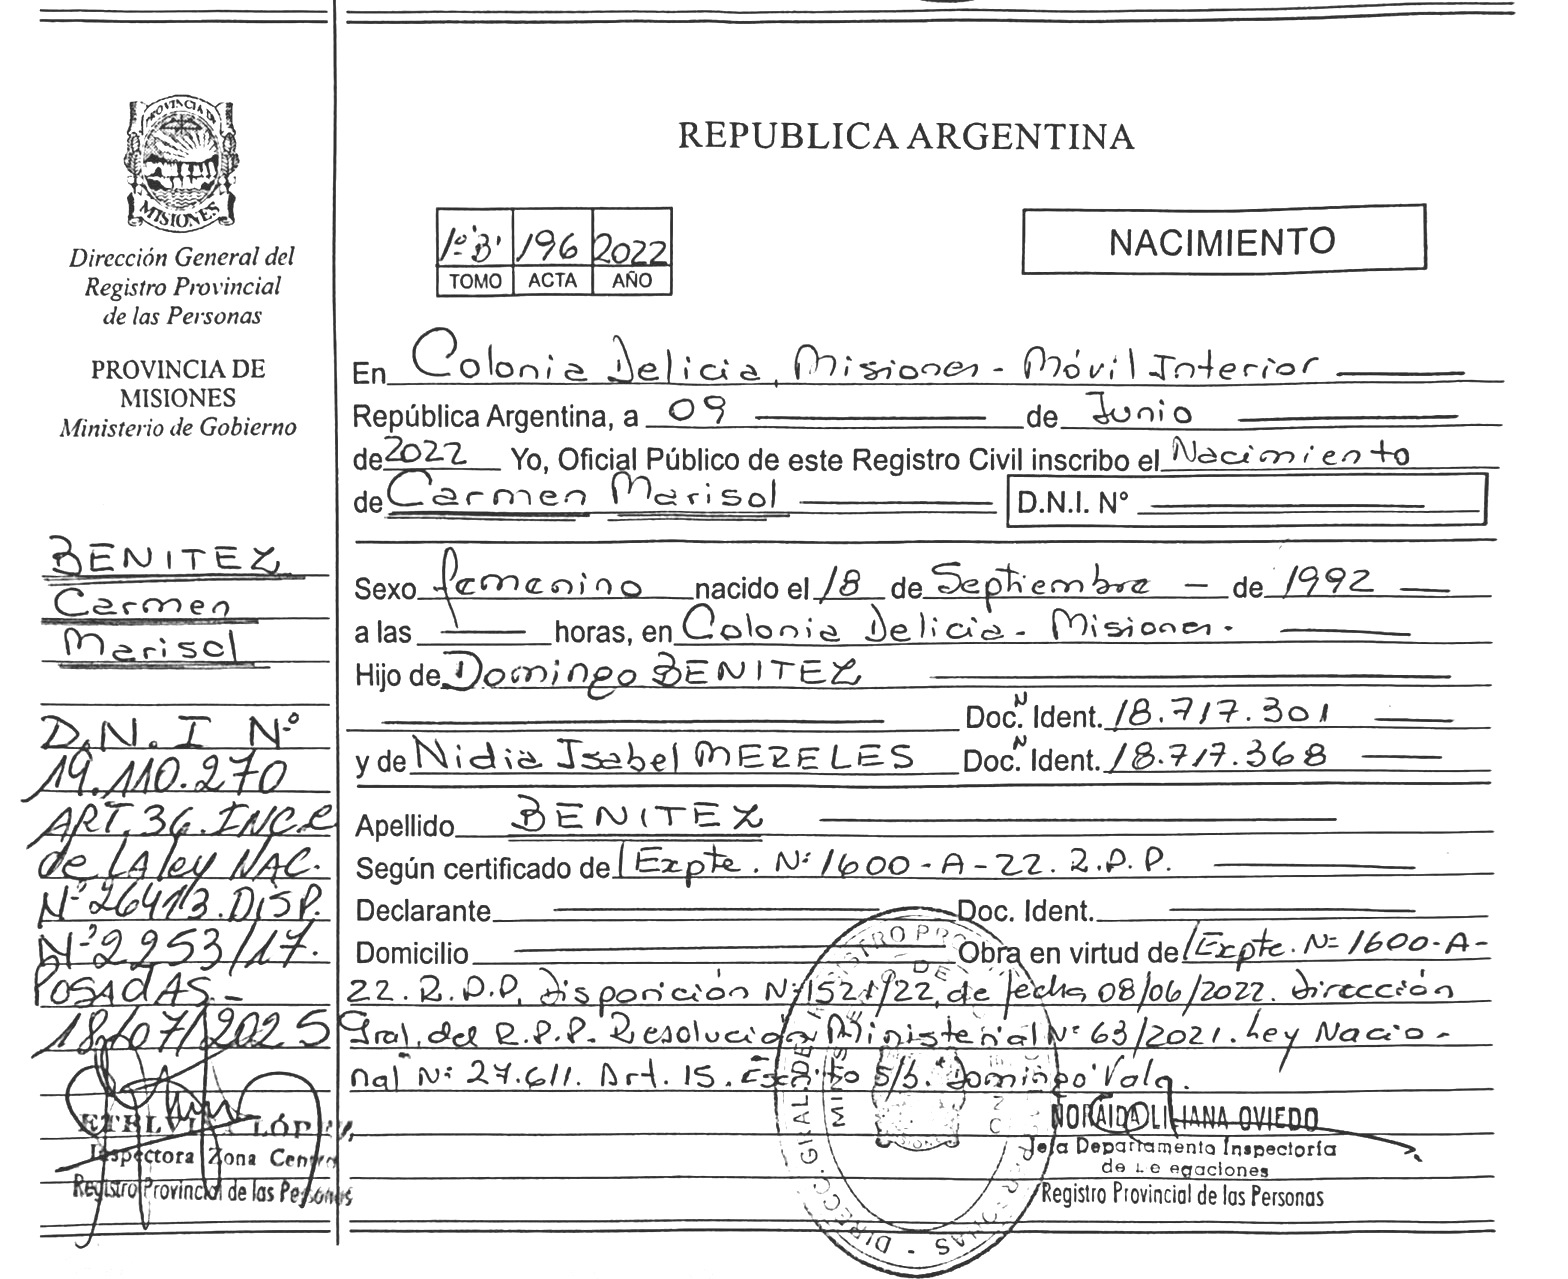 PROVINCIA DE
MISIONES
Dirección General del
Registro Provincial
de las Personas
PROVINCIA DE
MISIONES
Ministerio de Gobierno
BENITEZ
Carmen
Marisol
D.N.I Nº
19.110.270
ART.36.INC.e
de LA ley NAC.
Nº26413.DISP.
Nº2253/17.
POSADAS-
18/07/2025
LÓPEZ
Inspectora Zona Centro
Registro Provincial de las Personas
REPUBLICA ARGENTINA
1º"B" 196 2022
TOMO ACTA AÑO
NACIMIENTO
En Colonia Delicia, Misiones - Móvil Interior
República Argentina, a 09 de Junio
de 2022 Yo, Oficial Público de este Registro Civil inscribo el Nacimiento
de Carmen Marisol D.N.I. N°
Sexo femenino nacido el 18 de Septiembre - de 1992
a las horas, en Colonia Delicia - Misiones.
Hijo de Domingo BENITEZ
Doc. N Ident. 18.717.301
y de Nidia Isabel MEZELES Doc. N Ident. 18.717.368
Apellido BENITEZ
Según certificado de Expte. Nº 1600-A-22. R.P.P.
Declarante Doc. Ident.
Domicilio Obra en virtud de Expte. Nº 1600-A-
22. R.P.P. Disposición Nº 1521/22, de fecha 08/06/2022. Dirección
Gral. del R.P.P. Resolución Ministerial Nº 63/2021. Ley Nacio-
nal Nº 27.611. Art. 15. Escrito S/b. Domingo Vala.
NORAIDA LILIANA OVIEDO
Jefa Departamento Inspectoría
de Delegaciones
Registro Provincial de las Personas